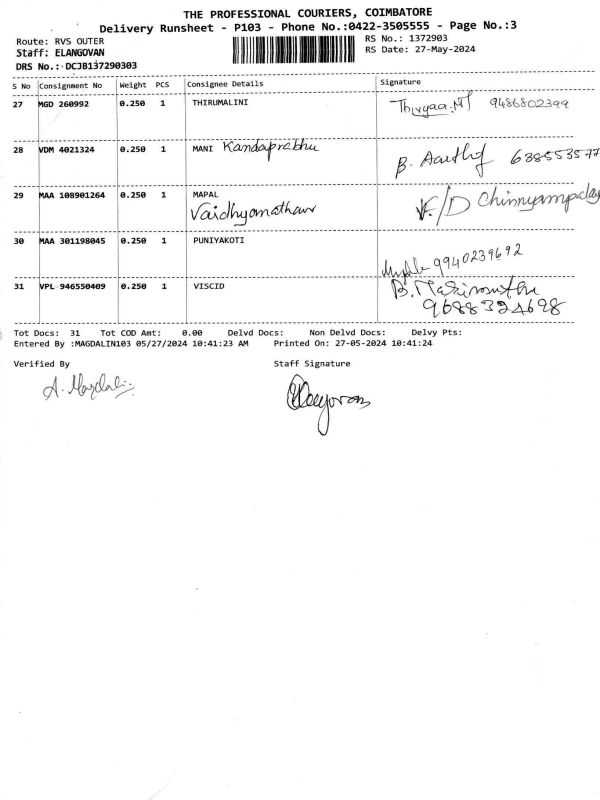 THE PROFESSIONAL COURIERS, COIMBATORE
Delivery Runsheet - P103 - Phone No.:0422-3505555 - Page No.:3
Route: RVS OUTER RS No.: 1372903
Staff: ELANGOVAN RS Date: 27-May-2024
DRS No.: DCJB137290303
S No Consignment No Weight PCS Consignee Details Signature
27 MGD 260992 0.250 1 THIRUMALINI 9486802399
28 VDM 4021324 0.250 1 MANI Kandaprabhu B. 638553577
29 MAA 108901264 0.250 1 MAPAL
Vaidhyanathan F/D Chinnyampalay
30 MAA 301198045 0.250 1 PUNIYAKOTI
9940239692
31 VPL 946550409 0.250 1 VISCID B.
9688324698
Tot Docs: 31 Tot COD Amt: 0.00 Delvd Docs: Non Delvd Docs: Delvy Pts:
Entered By :MAGDALIN103 05/27/2024 10:41:23 AM Printed On: 27-05-2024 10:41:24
Verified By Staff Signature
A. Magdalin